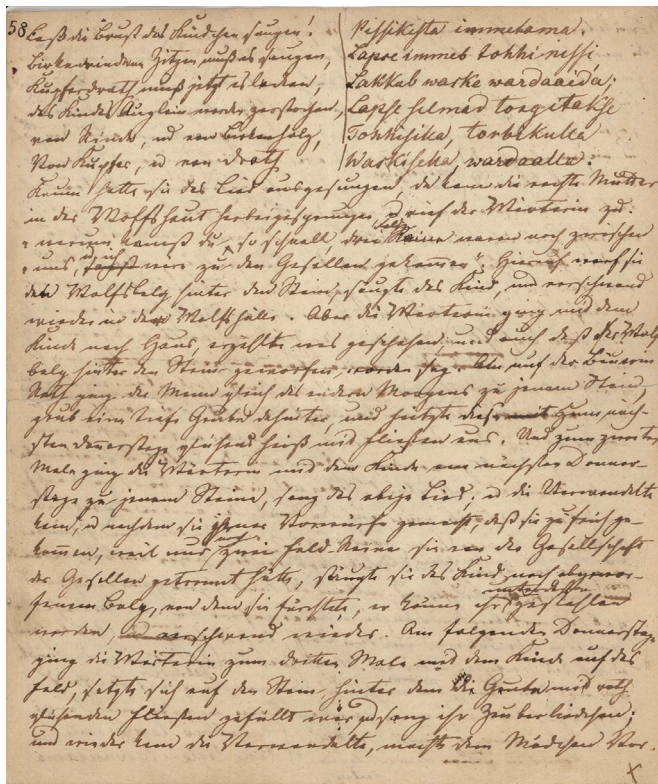 58
Laß die Brust das Kindchen saugen!
Birkenrinden Zitzen muß es saugen,
Kupferdrath muß jetzt es lecken,
des Kindes Äuglein werden zerstochen,
von Rinde, und von Birkenholz,
Von Kupfer, u von Drath.
Pissikesta immetama.
Lapse immeb tohhi nessi
Lakkub waske wardaaida;
Lapse selmad torgitakse
Tohhisika, torbikulla
Waskisella, wardaalla.
Kaum hatte sie das Lied ausgesungen, da kam die rechte Mutter
in der Wolfshaut herbeigesprungen, u rief der Wärterin zu:
warum kamst du so schnell drei Feld Raine waren noch zwischen
uns, wäre zu den Gesellen gekommen". Hierauf warf sie
den Wolfsbalg hinter den Stein, säugte das Kind, und verschwand
wieder in der Wolfshülle. Aber die Wärterin ging mit dem
Kinde nach Haus, erzählte was geschehen und auch daß der Wolfs
balg hinter den Stein geworfen worden sey. auf der Bäuerin
Rath ging der Mann gleich des andern Morgens zu jenem Stein,
grub eine tiefe Grube dahinter, und heitzte zum näch-
sten Donnerstage glühend heiß mit Fliesen aus. Und zum zweiten
Male ging die Wärterin mit dem Kinde am nächsten Donner-
stage zu jenem Steine, sang das obige Lied, u die Verwandelte
kam, u nachdem sie jener Vorwürfe gemacht, daß sie zu früh ge-
kommen, weil nur noch zwei Feld-Raine sie von der Gesellschaft
der Gesellen getrennt hätte, säugte sie das Kind nach abgewor-
fenem Balg, von dem sie fürchtete, er könne ihr unterdessen gestohlen
werden, und verschwand wieder. Am folgenden Donnerstage
ging die Wärterin zum dritten Male mit dem Kinde auf das
Feld, setzte sich auf den Stein hinter dem die Grube mit roth
glühenden Fliesen gefüllt war u sang ihr Zauberliedchen;
und wieder kam die Verwandelte, machte dem Mädchen Vor-